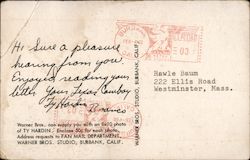 Hi Sure a pleasure
hearing from you.
Enjoyed reading your
letter Your Texas Cowboy
Ty Hardin
"Bronco"
Warner Bros. can supply you with an 8x10 photo
of TY HARDIN. Enclose 50c for each photo.
Address requests to FAN MAIL DEPARTMENT,
WARNER BROS. STUDIO, BURBANK, CALIF.
WARNER BROS. STUDIO, BURBANK, CALIF.
U.S. POSTAGE
03
Hawle Baum
222 Ellis Road
Westminster, Mass.